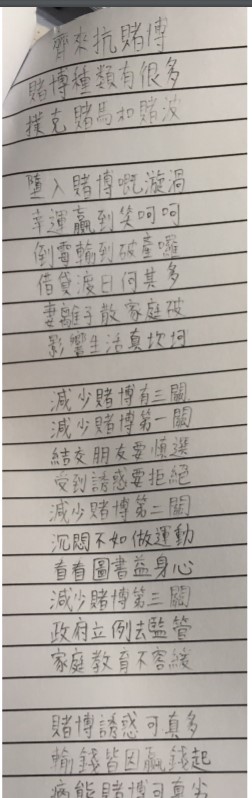 齊來抗賭博
賭博種類有很多
撲克賭馬和賭波
墮入賭博嘅漩渦
幸運贏到笑呵呵
倒霉輸到破產囉
借貸渡日何其多
妻離子散家庭破
影響生活真坎坷
減少賭博有三關
減少賭博第一關
結交朋友要慎選
受到誘惑要拒絕
減少賭博第二關
沉悶不如做運動
看看圖書益身心
減少賭博第三關
政府立例去監管
家庭教育不容緩
賭博誘惑可真多
輸錢皆因贏錢起
病態賭博可真